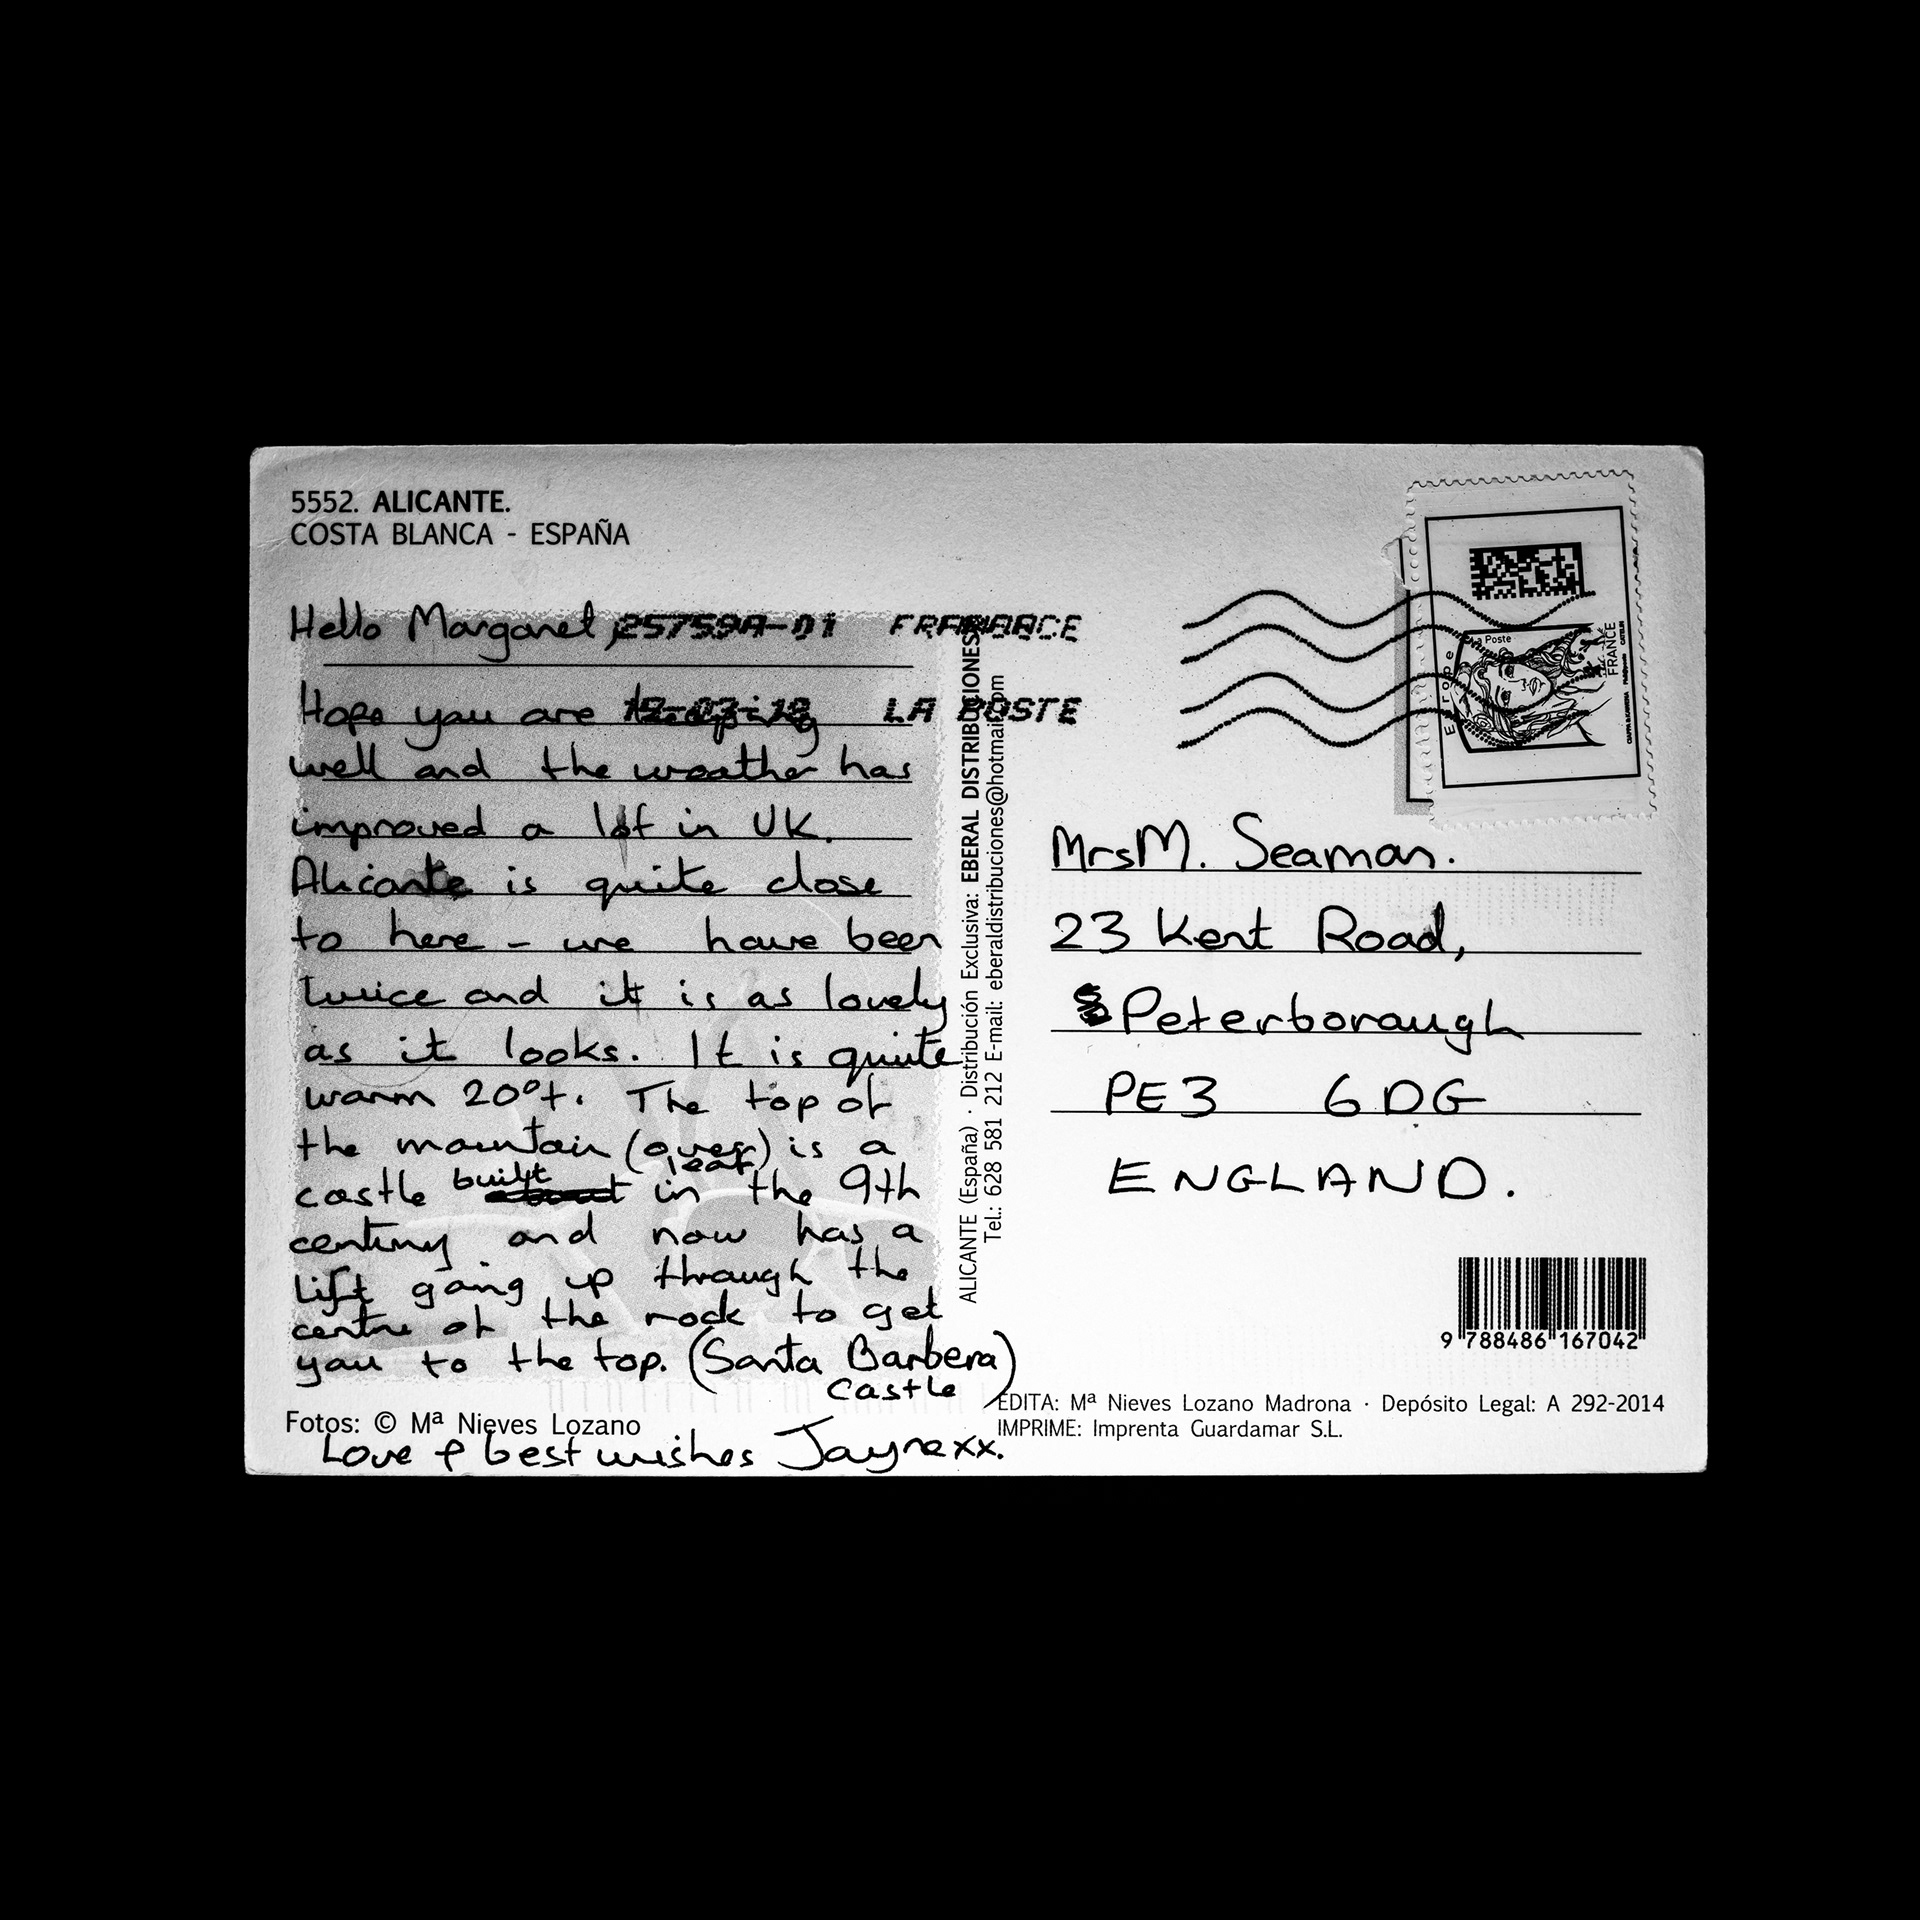 5552. ALICANTE.
COSTA BLANCA - ESPAÑA
Hello Margaret,
Hope you are keeping
well and the weather has
improved a lot in UK.
Alicante is quite close
to here - we have been
twice and it is as lovely
as it looks. It is quite
warm 20°+. The top of
the mountain (over) is a
leaf
castle built in the 9th
century and now has a
lift going up through the
centre of the rock to get
you to the top. (Santa Barbera)
castle
Fotos: © Mª Nieves Lozano
Love & best wishes Jayne xx.
257599A-01 FRANCE
LA POSTE
ALICANTE (España) · Distribución Exclusiva: EBERAL DISTRIBUCIONES
Tel.: 628 581 212 E-mail: eberaldistribuciones@hotmail.com
La Poste
Europe
FRANCE
Mrs M. Seaman.
23 Kent Road,
Peterborough
PE3 6DG
ENGLAND.
9 788486 167042
EDITA: Mª Nieves Lozano Madrona · Depósito Legal: A 292-2014
IMPRIME: Imprenta Guardamar S.L.